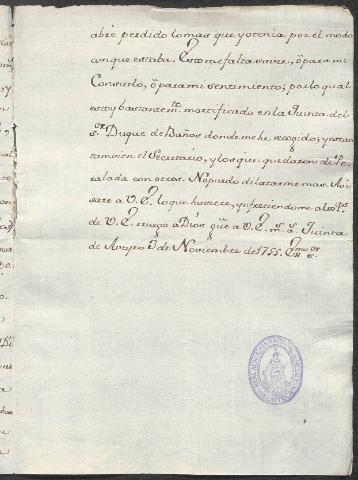 abie perdido lo mas que yo tenia por el modo
con que estaba. Esto me falta saver, ô para mi
Consuelo, ô para mi sentimiento; por lo qual
estoy bastantem.te mortificado en la Quinta del
s.or Duque de Baños donde me he recogido; y estan
tamvien el Secretario, y los que quedaron de Pe
ralada con otros. No puedo dilatarme mas. Avi
sare a V. E. lo que huviere, y ofreciendome a los P.s
de V. E. ruego a Dios g.ue a V. E. m.s a.s Quinta
de Aveyro 3 de Noviembre de 1755. Ex.mo s.or